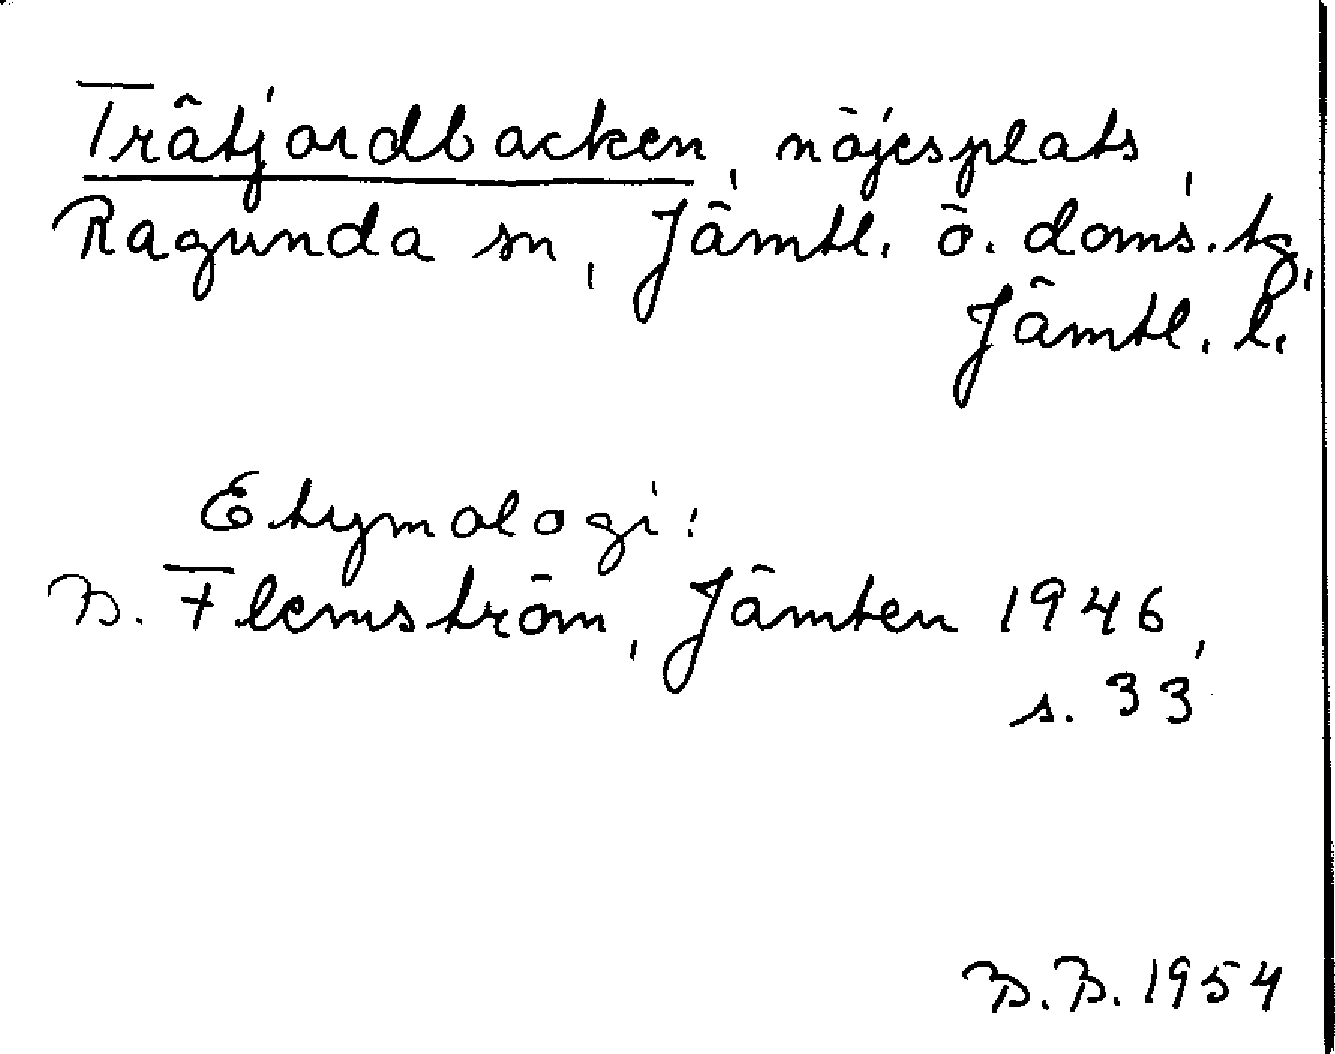 Trätjärdbacken, nöjesplats,
Ragunda sn, Jämtl. ö. doms.tg,
Jämtl. l.
Etymologi:
B. Flemström, Jämten 1946,
s. 33
B.B. 1954